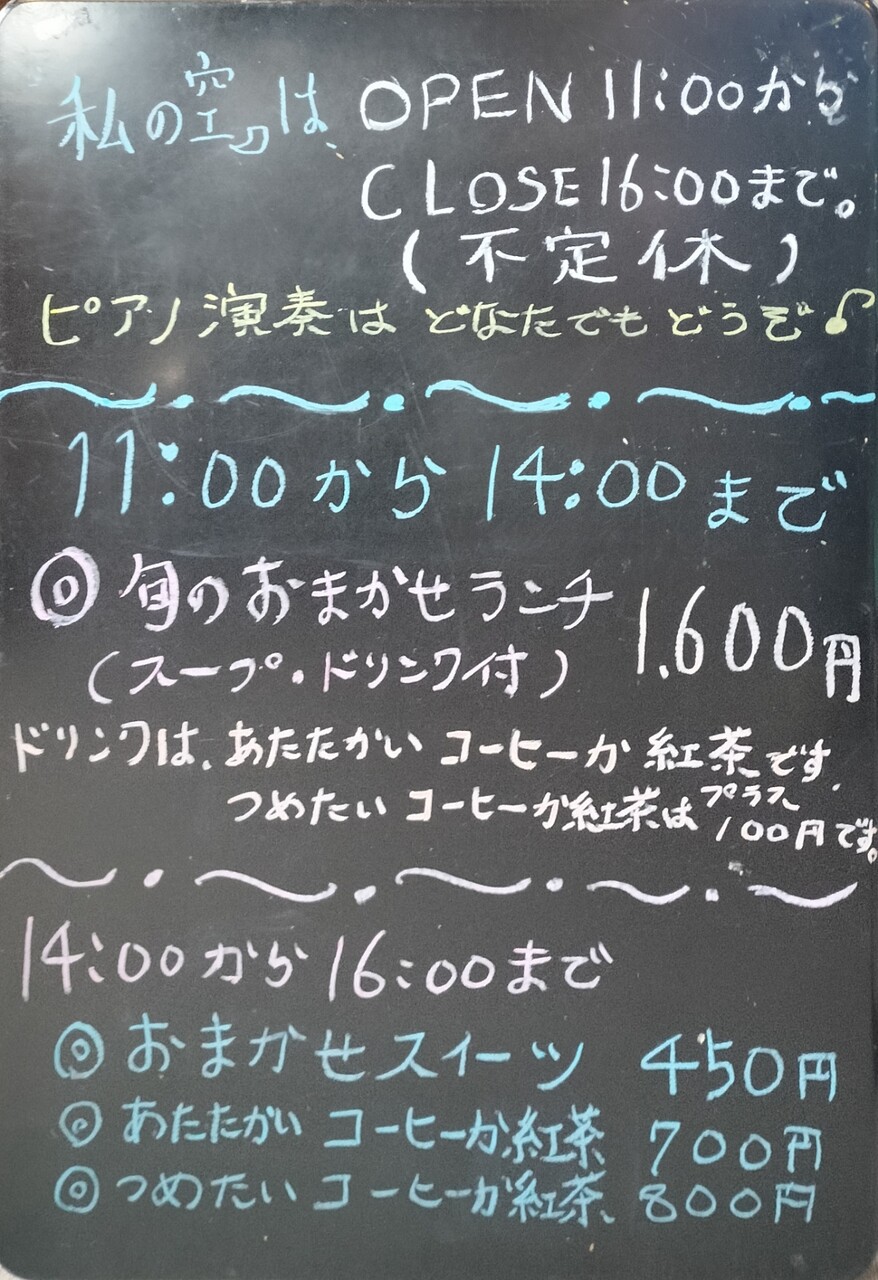 私の空♪は、OPEN 11:00から
CLOSE 16:00まで。
(不定休)
ピアノ演奏は どなたでも どうぞ♪
11:00から 14:00まで
◎旬のおまかせランチ 1.600円
(スープ・ドリンク付)
ドリンクは、あたたかい コーヒーか 紅茶です.
つめたい コーヒーか紅茶はプラス100円です。
14:00から 16:00まで
◎おまかせスイーツ 450円
◎あたたかい コーヒーか紅茶 700円
◎つめたい コーヒーか紅茶、800円